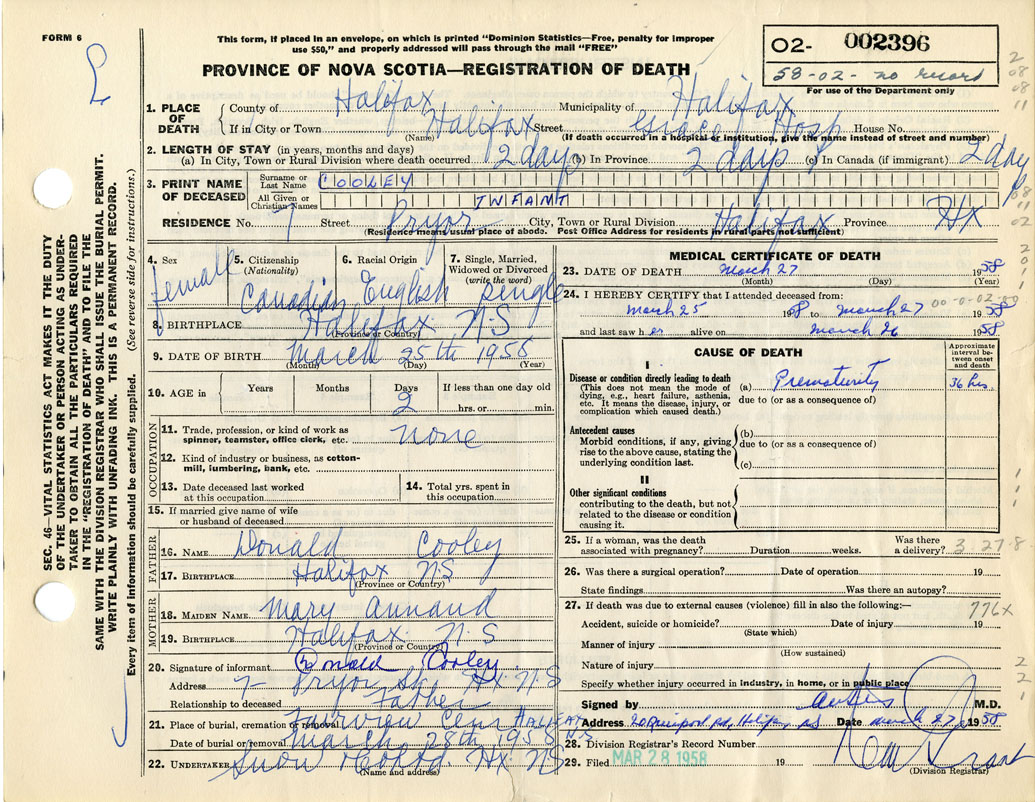 FORM 6
This form, if placed in an envelope, on which is printed "Dominion Statistics—Free, penalty for improper
use $50," and properly addressed will pass through the mail "FREE"
PROVINCE OF NOVA SCOTIA—REGISTRATION OF DEATH
02- 002396
58-02- no record
For use of the Department only
1. PLACE OF DEATH
County of Halifax Municipality of Halifax
If in City or Town Halifax Street Grace Hosp House No.
(Name) (If death occurred in a hospital or institution, give the name instead of street and number)
2. LENGTH OF STAY (in years, months and days)
(a) In City, Town or Rural Division where death occurred 2 days (b) In Province 2 days (c) In Canada (if immigrant) 2 days
3. PRINT NAME OF DECEASED
Surname or Last Name COOLEY
All Given or Christian Names INFANT
RESIDENCE No. 7 Street Pryor City, Town or Rural Division Halifax Province Hx
(Residence means usual place of abode. Post Office Address for residents in rural parts not sufficient)
4. Sex female
5. Citizenship (Nationality) Canadian
6. Racial Origin English
7. Single, Married, Widowed or Divorced (write the word) single
8. BIRTHPLACE Halifax N.S
(Province or Country)
9. DATE OF BIRTH March 25th 1958
(Month) (Day) (Year)
10. AGE in Years Months Days 2 If less than one day old
hrs. or min.
OCCUPATION
11. Trade, profession, or kind of work as
spinner, teamster, office clerk, etc. none
12. Kind of industry or business, as cotton-
mill, lumbering, bank, etc.
13. Date deceased last worked
at this occupation
14. Total yrs. spent in
this occupation
15. If married give name of wife
or husband of deceased
FATHER
16. NAME Donald Cooley
17. BIRTHPLACE Halifax NS
(Province or Country)
MOTHER
18. MAIDEN NAME Mary Annand
19. BIRTHPLACE Halifax N.S
(Province or Country)
20. Signature of informant Donald Cooley
Address 7 Pryor St. Hx N.S
Relationship to deceased Father
21. Place of burial, cremation or removal Fairview Cem HALIFAX N.S
Date of burial or removal March 28th 1958
22. UNDERTAKER Snow Hx NS
(Name and address)
MEDICAL CERTIFICATE OF DEATH
23. DATE OF DEATH March 27 1958
(Month) (Day) (Year)
24. I HEREBY CERTIFY that I attended deceased from:
March 25 1958 to March 27 1958
and last saw her alive on March 26 1958
CAUSE OF DEATH
Approximate
interval be-
tween onset
and death
I
Disease or condition directly leading to death
(This does not mean the mode of
dying, e.g., heart failure, asthenia,
etc. It means the disease, injury, or
complication which caused death.)
(a) Prematurity 36 hrs.
due to (or as a consequence of)
Antecedent causes
Morbid conditions, if any, giving
rise to the above cause, stating the
underlying condition last.
(b)
due to (or as a consequence of)
(c)
II
Other significant conditions
contributing to the death, but not
related to the disease or condition
causing it.
25. If a woman, was the death
associated with pregnancy? Duration weeks. Was there
a delivery? 3-27-8
26. Was there a surgical operation? Date of operation 19
State findings Was there an autopsy?
27. If death was due to external causes (violence) fill in also the following:— 776x
Accident, suicide or homicide? Date of injury 19
(State which)
Manner of injury
(How sustained)
Nature of injury
Specify whether injury occurred in industry, in home, or in public place
Signed by M.D.
Address Halifax NS Date March 27 1958
28. Division Registrar's Record Number
29. Filed MAR 28 1958 19
(Division Registrar)
SEC. 46—VITAL STATISTICS ACT MAKES IT THE DUTY
OF THE UNDERTAKER OR PERSON ACTING AS UNDER-
TAKER TO OBTAIN ALL THE PARTICULARS REQUIRED
IN THE "REGISTRATION OF DEATH" AND TO FILE THE
SAME WITH THE DIVISION REGISTRAR WHO SHALL ISSUE THE BURIAL PERMIT.
WRITE PLAINLY WITH UNFADING INK. THIS IS A PERMANENT RECORD.
Every item of information should be carefully supplied. (See reverse side for instructions.)